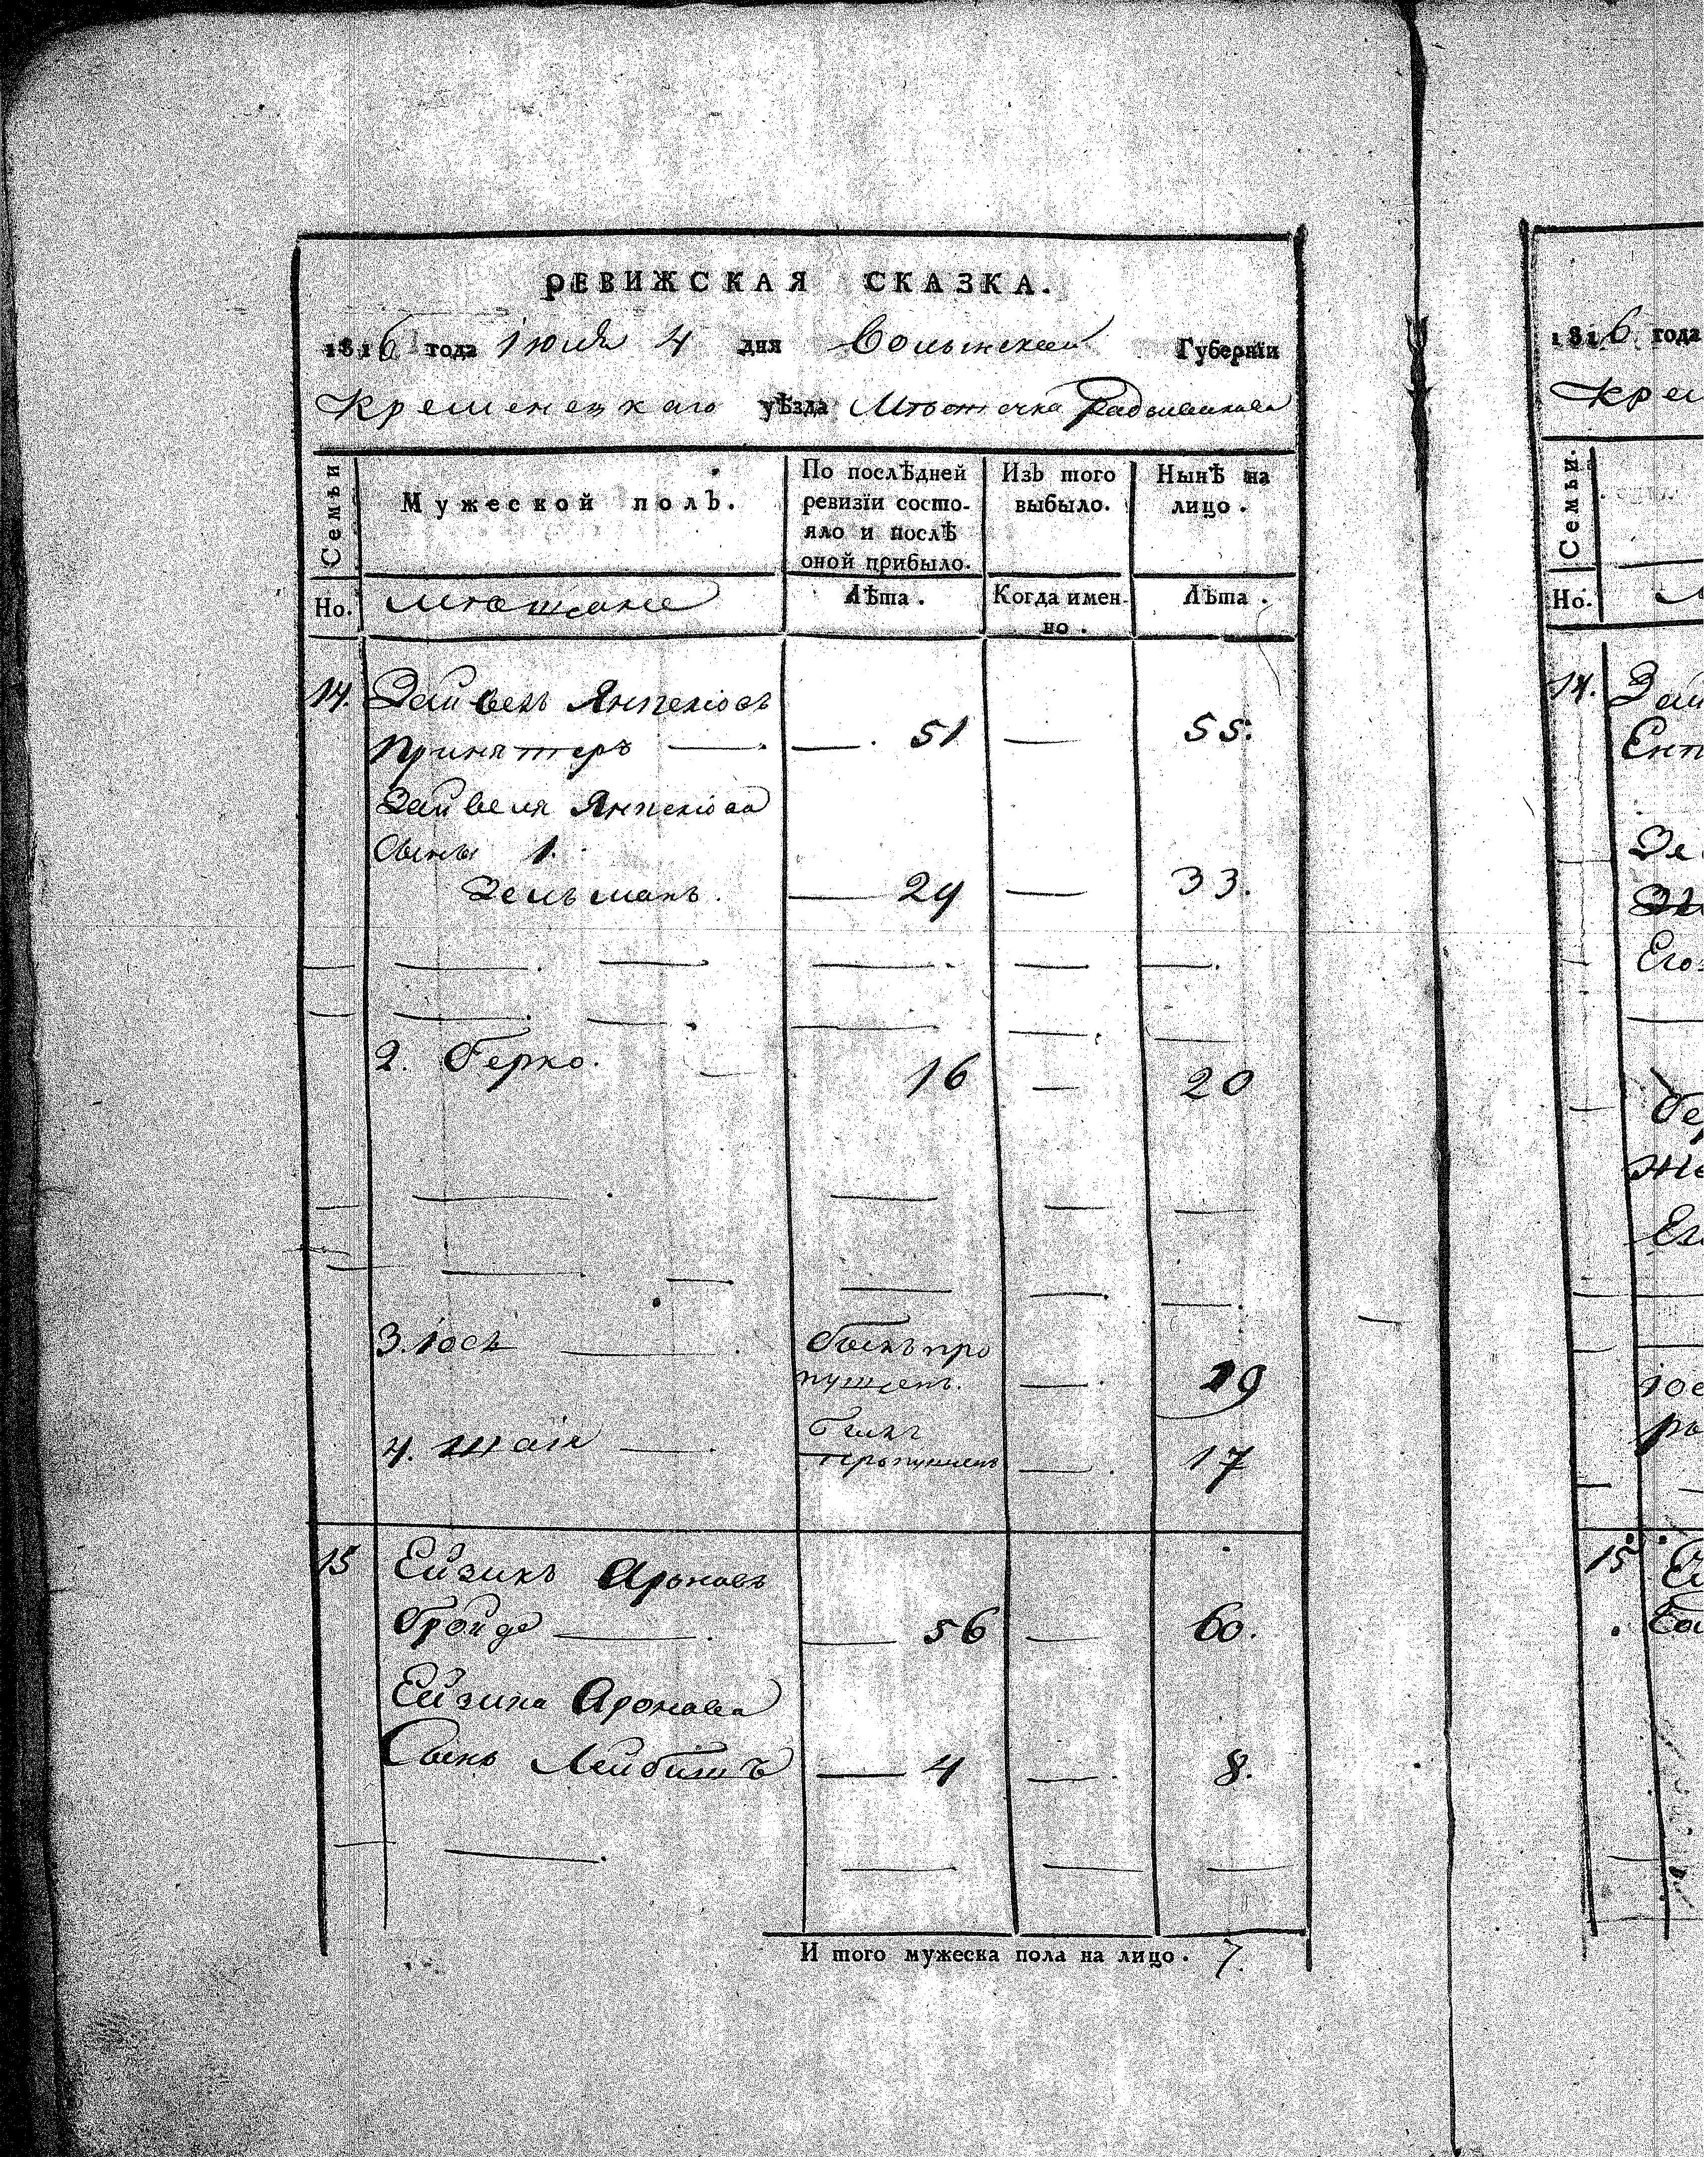 РЕВИЖСКАЯ СКАЗКА.
1816 года Июля 4 дня Волынской Губерніи
Кременецкаго уѣзда Мѣстечка Радзивилова
Семьи
Мужеской полъ.
По послѣдней ревизіи состо-
яло и послѣ
оной прибыло.
Изъ того
выбыло.
Нынѣ на
лицо.
Но.
Мѣщане
Лѣта.
Когда имен-
но.
Лѣта.
14. Зейвель Янкеліовъ
51 55.
Зейвеля Янкеліова
Сыны 1.
Зельманъ. 29 33.
2. Берко. 16 20
3. Іось былъ про
пущенъ. 19
4. Шаія былъ
пропущенъ 17
15 Ейзикъ Ароновъ
Бройде 56 60.
Ейзика Аронова
Сынъ Лейбишъ 4 8.
И того мужеска пола на лицо. 7.
1816 года
Кре
Семьи.
Но.
14. Зей
Ент
Зе
Его
Бе
Же
Ег
Іос
15